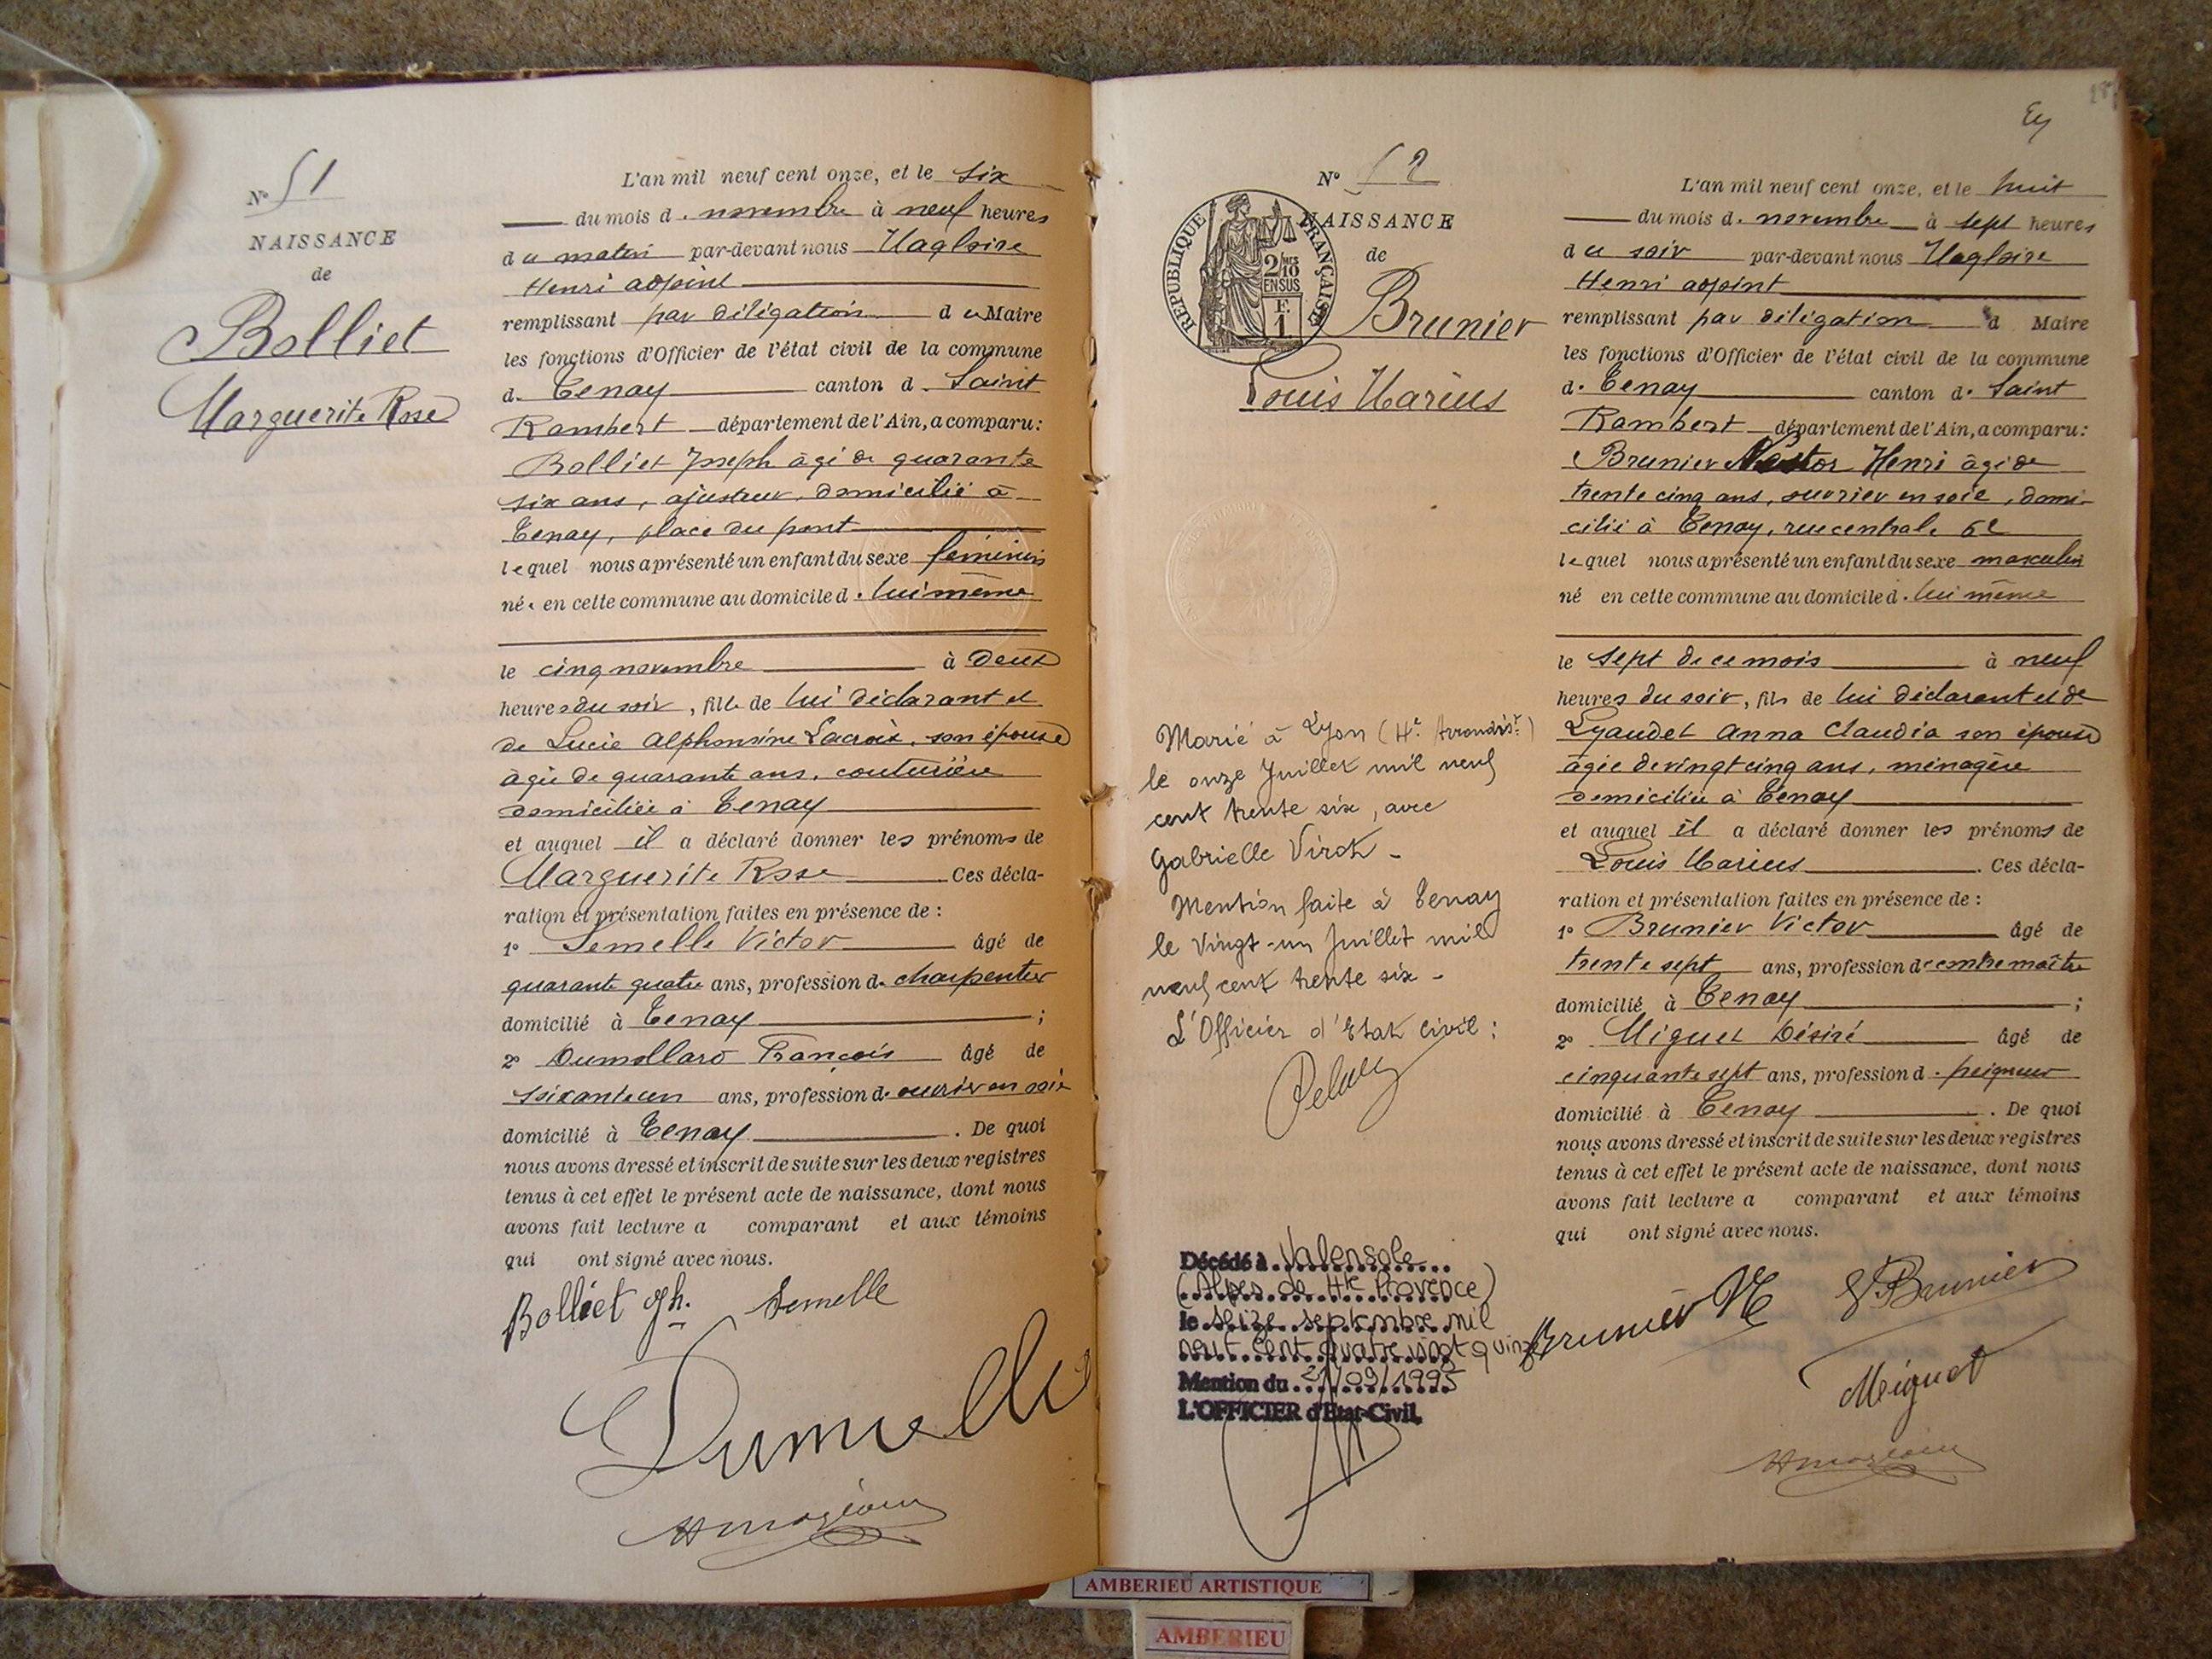 Nº 51
NAISSANCE
de
Bolliet
Marguerite Rose
L'an mil neuf cent onze, et le six
du mois de novembre à neuf heures
du matin par-devant nous Magloire
Henri adjoint
remplissant par délégation du Maire
les fonctions d'Officier de l'état civil de la commune
de Tenay canton de Saint
Rambert département de l'Ain, a comparu:
Bolliet Joseph âgé de quarante
six ans, ajusteur, domicilié à
Tenay, place du pont
lequel nous a présenté un enfant du sexe féminin
née en cette commune au domicile de lui même
le cinq novembre à deux
heures du soir, fille de lui déclarant et
de Lucie Alphonsine Lacroix, son épouse
âgée de quarante ans, couturière
domiciliée à Tenay
et auquel il a déclaré donner les prénoms de
Marguerite Rose Ces décla-
ration et présentation faites en présence de :
1º Semelle Victor âgé de
quarante quatre ans, profession de charpentier
domicilié à Tenay ;
2º Dumollard François âgé de
soixante un ans, profession de ouvrier en soie
domicilié à Tenay . De quoi
nous avons dressé et inscrit de suite sur les deux registres
tenus à cet effet le présent acte de naissance, dont nous
avons fait lecture a comparant et aux témoins
qui ont signé avec nous.
Bolliet Jh. Semelle
Nº 52
NAISSANCE
de
RÉPUBLIQUE FRANÇAISE
2/10 EN SUS
Brunier
Louis Marius
Marié à Lyon (4e Arrondist)
le onze Juillet mil neuf
cent trente six, avec
Gabrielle Virot -
Mention faite à Tenay
le vingt-un Juillet mil
neuf cent trente six -
L'Officier d'Etat Civil :
Décédé à Valensole
(Alpes de Hte Provence)
le seize septembre mil
neuf cent quatre vingt quinze
Mention du 21/09/1995
L'OFFICIER d'Etat-Civil,
L'an mil neuf cent onze, et le huit
du mois de novembre à sept heures
du soir par-devant nous Magloire
Henri adjoint
remplissant par délégation d Maire
les fonctions d'Officier de l'état civil de la commune
de Tenay canton de Saint
Rambert département de l'Ain, a comparu:
Brunier Nestor Henri âgé de
trente cinq ans, ouvrier en soie, domi-
cilié à Tenay, rue centrale 62
lequel nous a présenté un enfant du sexe masculin
né en cette commune au domicile de lui même
le sept de ce mois à neuf
heures du soir, fils de lui déclarant et de
Lyaudet Anna Claudia son épouse
âgée de vingt cinq ans, ménagère
domiciliée à Tenay
et auquel il a déclaré donner les prénoms de
Louis Marius . Ces décla-
ration et présentation faites en présence de :
1º Brunier Victor âgé de
trente sept ans, profession de contremaître
domicilié à Tenay ;
2º Miguet Désiré âgé de
cinquante sept ans, profession de peigneur
domicilié à Tenay . De quoi
nous avons dressé et inscrit de suite sur les deux registres
tenus à cet effet le présent acte de naissance, dont nous
avons fait lecture a comparant et aux témoins
qui ont signé avec nous.
Brunier V Brunier
Miguet
AMBERIEU ARTISTIQUE
AMBERIEU